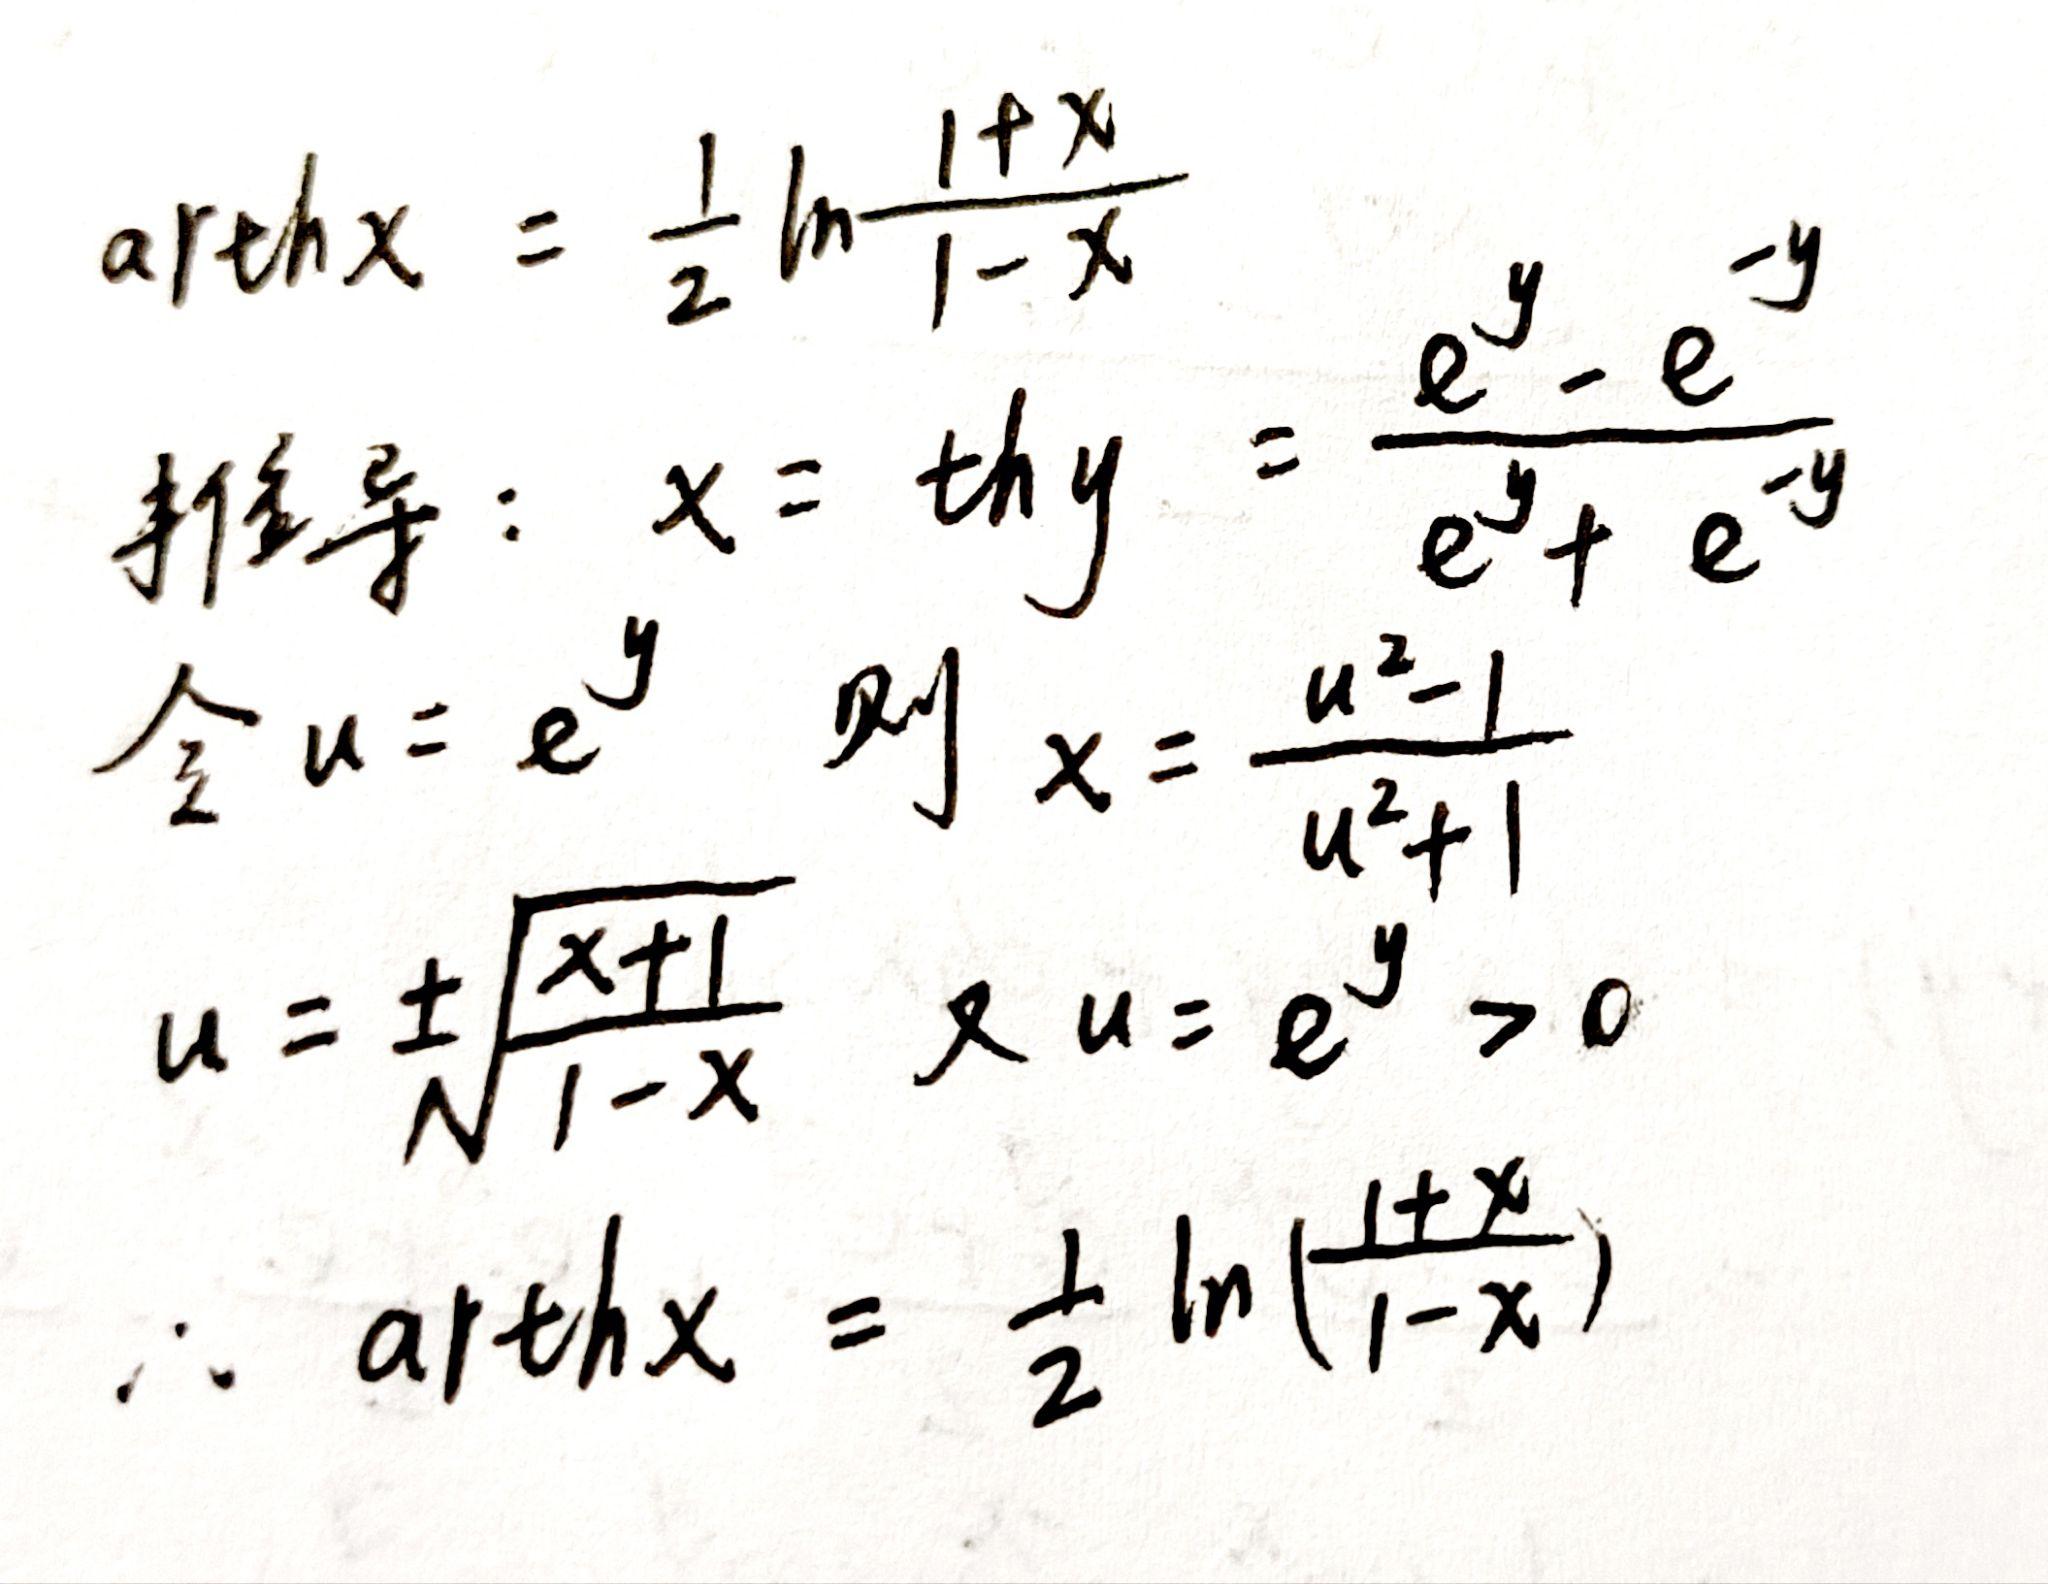 arthx = 1/2 ln (1+x)/(1-x)
推导: x = thy = (e^y - e^-y)/(e^y + e^-y)
令 u = e^y 则 x = (u²-1)/(u²+1)
u = ±√((x+1)/(1-x)) 又 u = e^y > 0
∴ arthx = 1/2 ln((1+x)/(1-x))